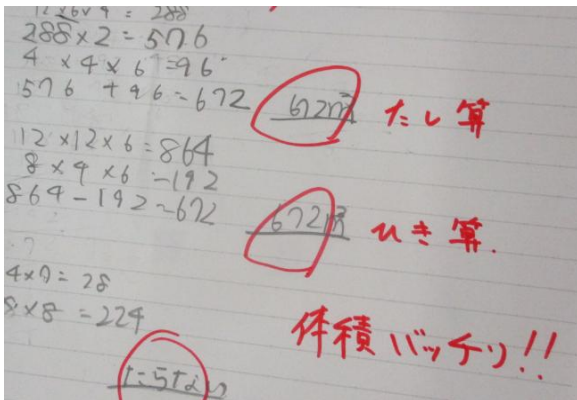 12×6×4 = 288
288×2=576
4×4×6=96
576+96=672
672m³ たし算
12×12×6=864
8×4×6=192
864-192=672
672m³ ひき算.
4×7=28
×8=224
体積バッチリ!!
たりない